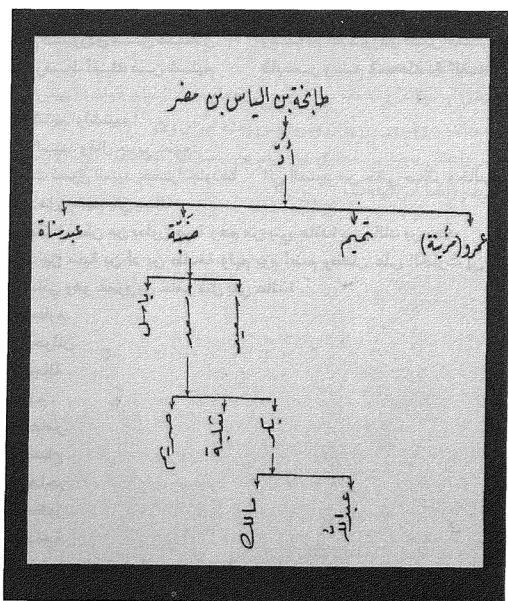 طابخة بن الياس بن مضر
أدّ
عمرو (مزينة) تميم ضبّة عبدمناة
سعيد سعد باسل
بكر ثعلبة صريم
عبدالله مالك